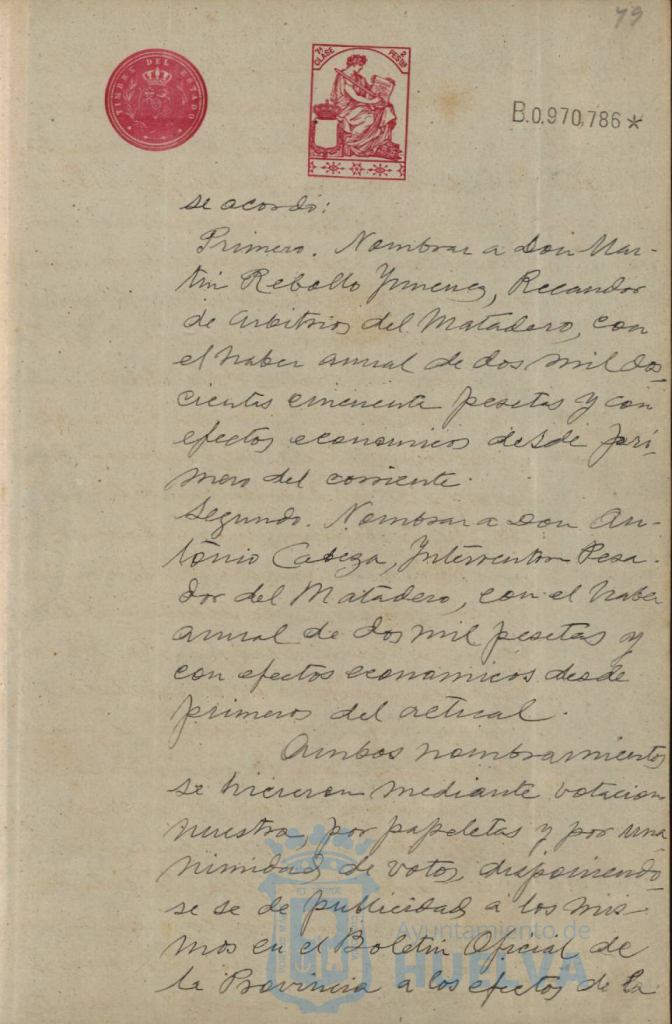 79
TIMBRE DEL ESTADO
7ª CLASE 2 PESTAS
B.0,970,786*
se acordó:
Primero. Nombrar a Don Mar-
tin Rebollo Jimenez, Recaudor
de Arbitrios del Matadero, con
el haber anual de dos mil dos-
cientas cincuenta pesetas y con
efectos economicos desde pri-
mero del corriente.
Segundo. Nombrar a Don An-
tonio Cabeza, Interventor Pesa-
dor del Matadero, con el haber
anual de dos mil pesetas y
con efectos economicos desde
primeros del actual.
Ambos nombramientos
se hicieron mediante votacion
por papeletas y por una
nimidad de votos, disponiendo-
se se de publicidad a los mis
mos en el Boletin Oficial de
la Provincia a los efectos de la
Ayuntamiento de
HUELVA